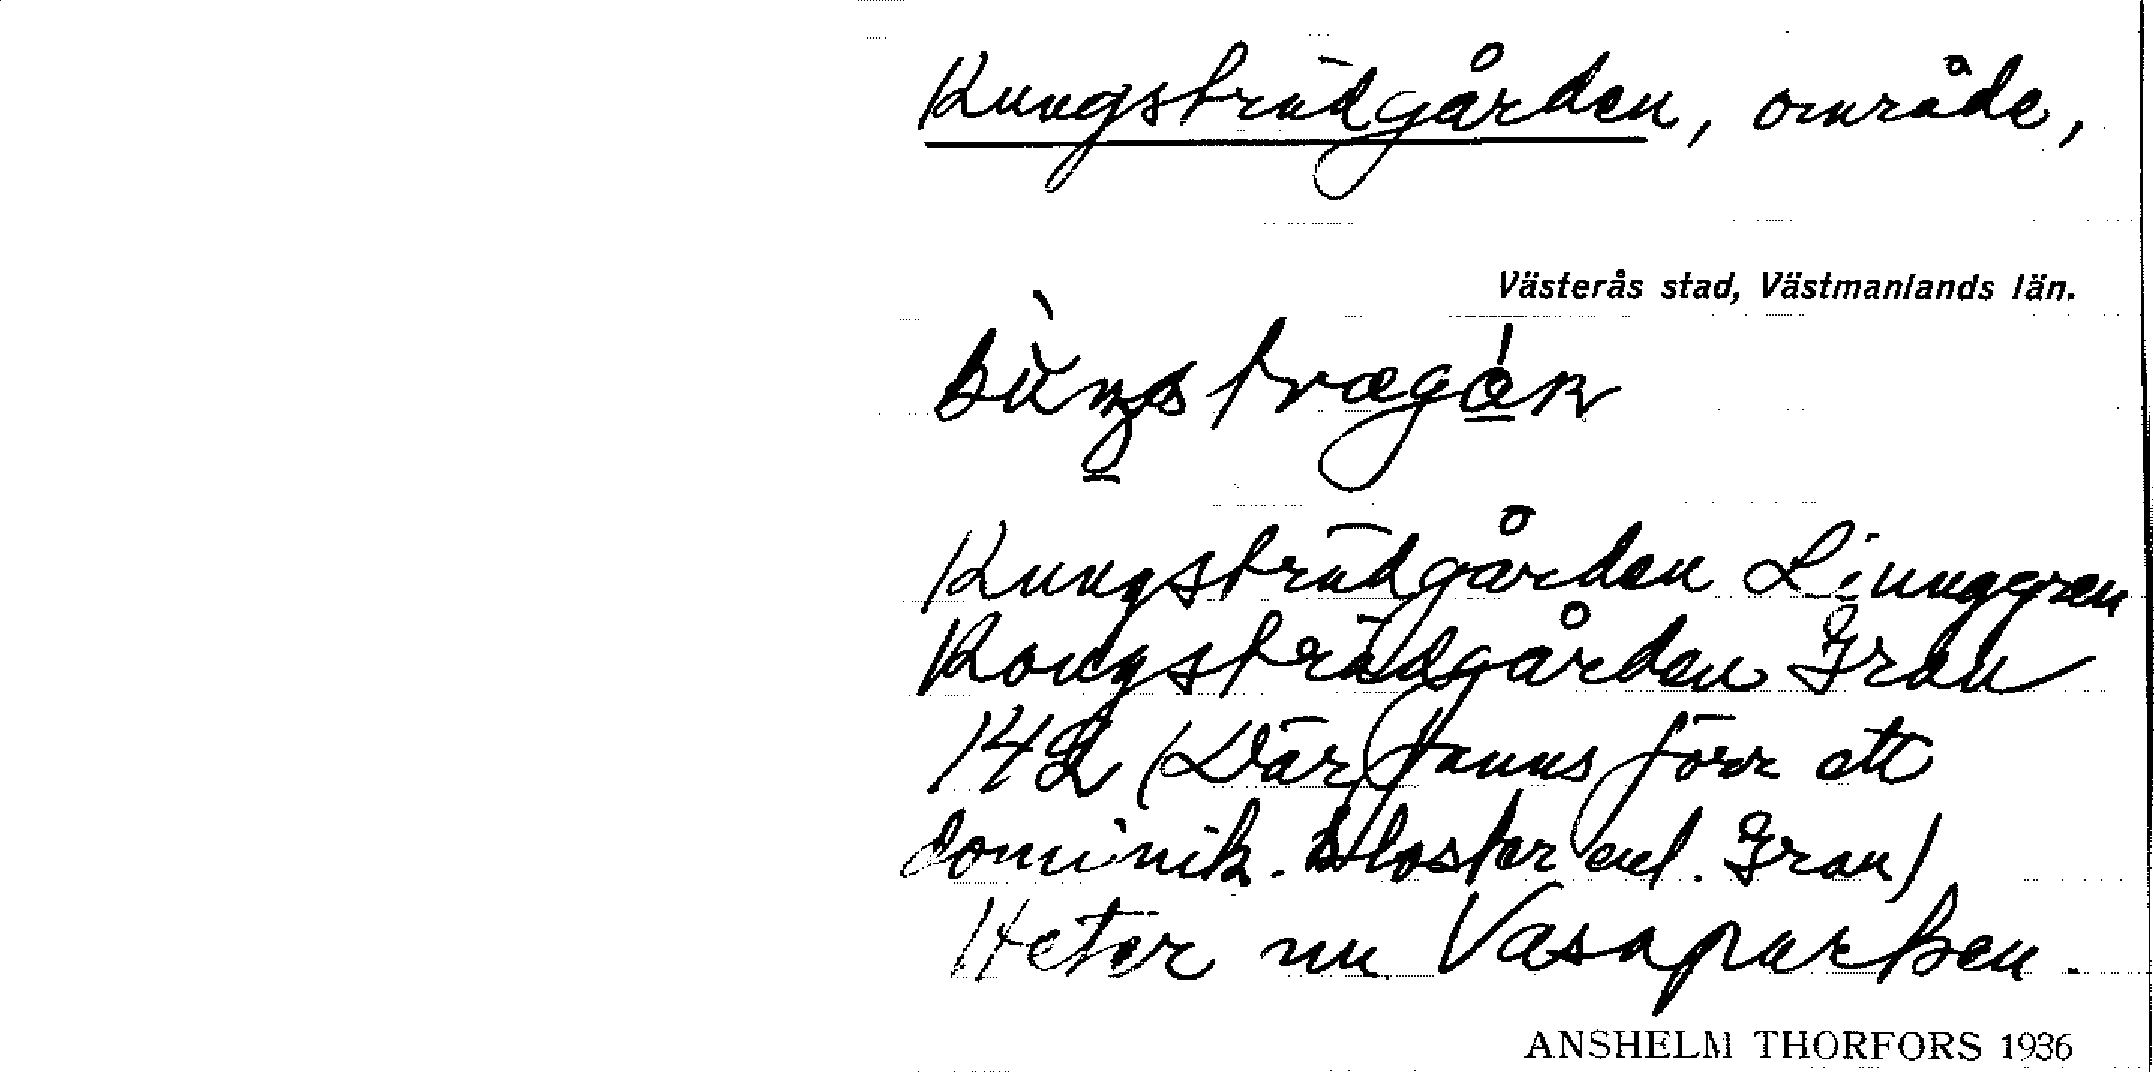 Kungsträdgården, område,
Västerås stad, Västmanlands län.
Kungsträdgården Ljunggren
Kongsträdgården Grau
142 (Där fanns förr ett
dominik. kloster enl. Grau)
Heter nu Vasaparken.
ANSHELM THORFORS 1936